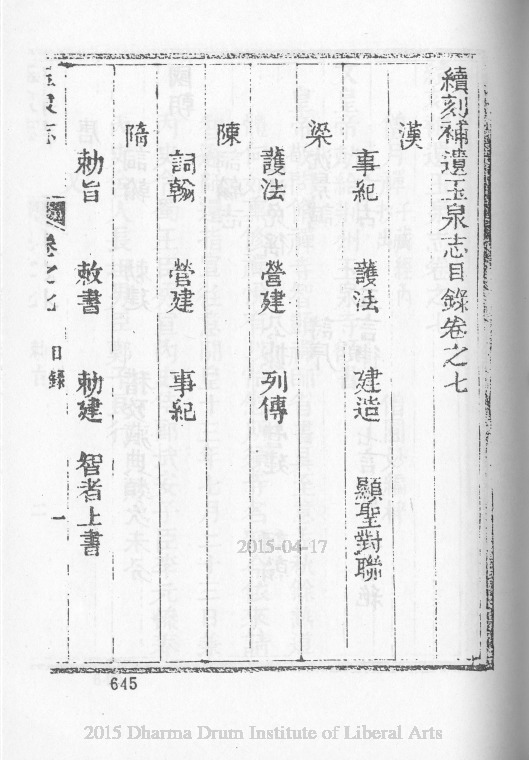 續刻補遺玉泉志目錄卷之七
漢
事紀 護法 建造 顯聖對聯
梁
護法 營建 列傳
陳
詞翰 營建 事紀
隋
勅旨 敕書 勅建 智者上書
玉泉志 卷之七 目錄 一
645
2015-04-17
2015 Dharma Drum Institute of Liberal Arts